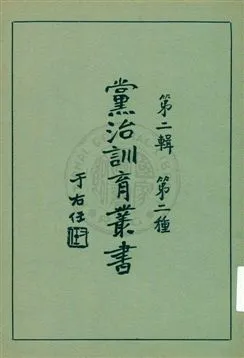 第二輯 第二種
黨治訓育叢書
于右任